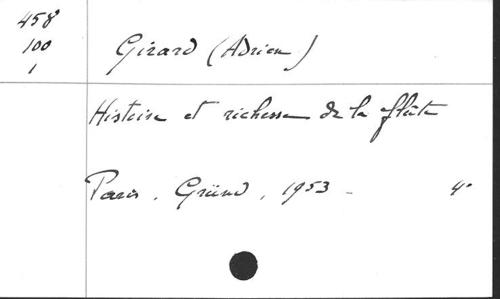 458
100
1
Girard (Adrien)
Histoire et richesse de la flûte
Paris. Gründ, 1953 - 4°